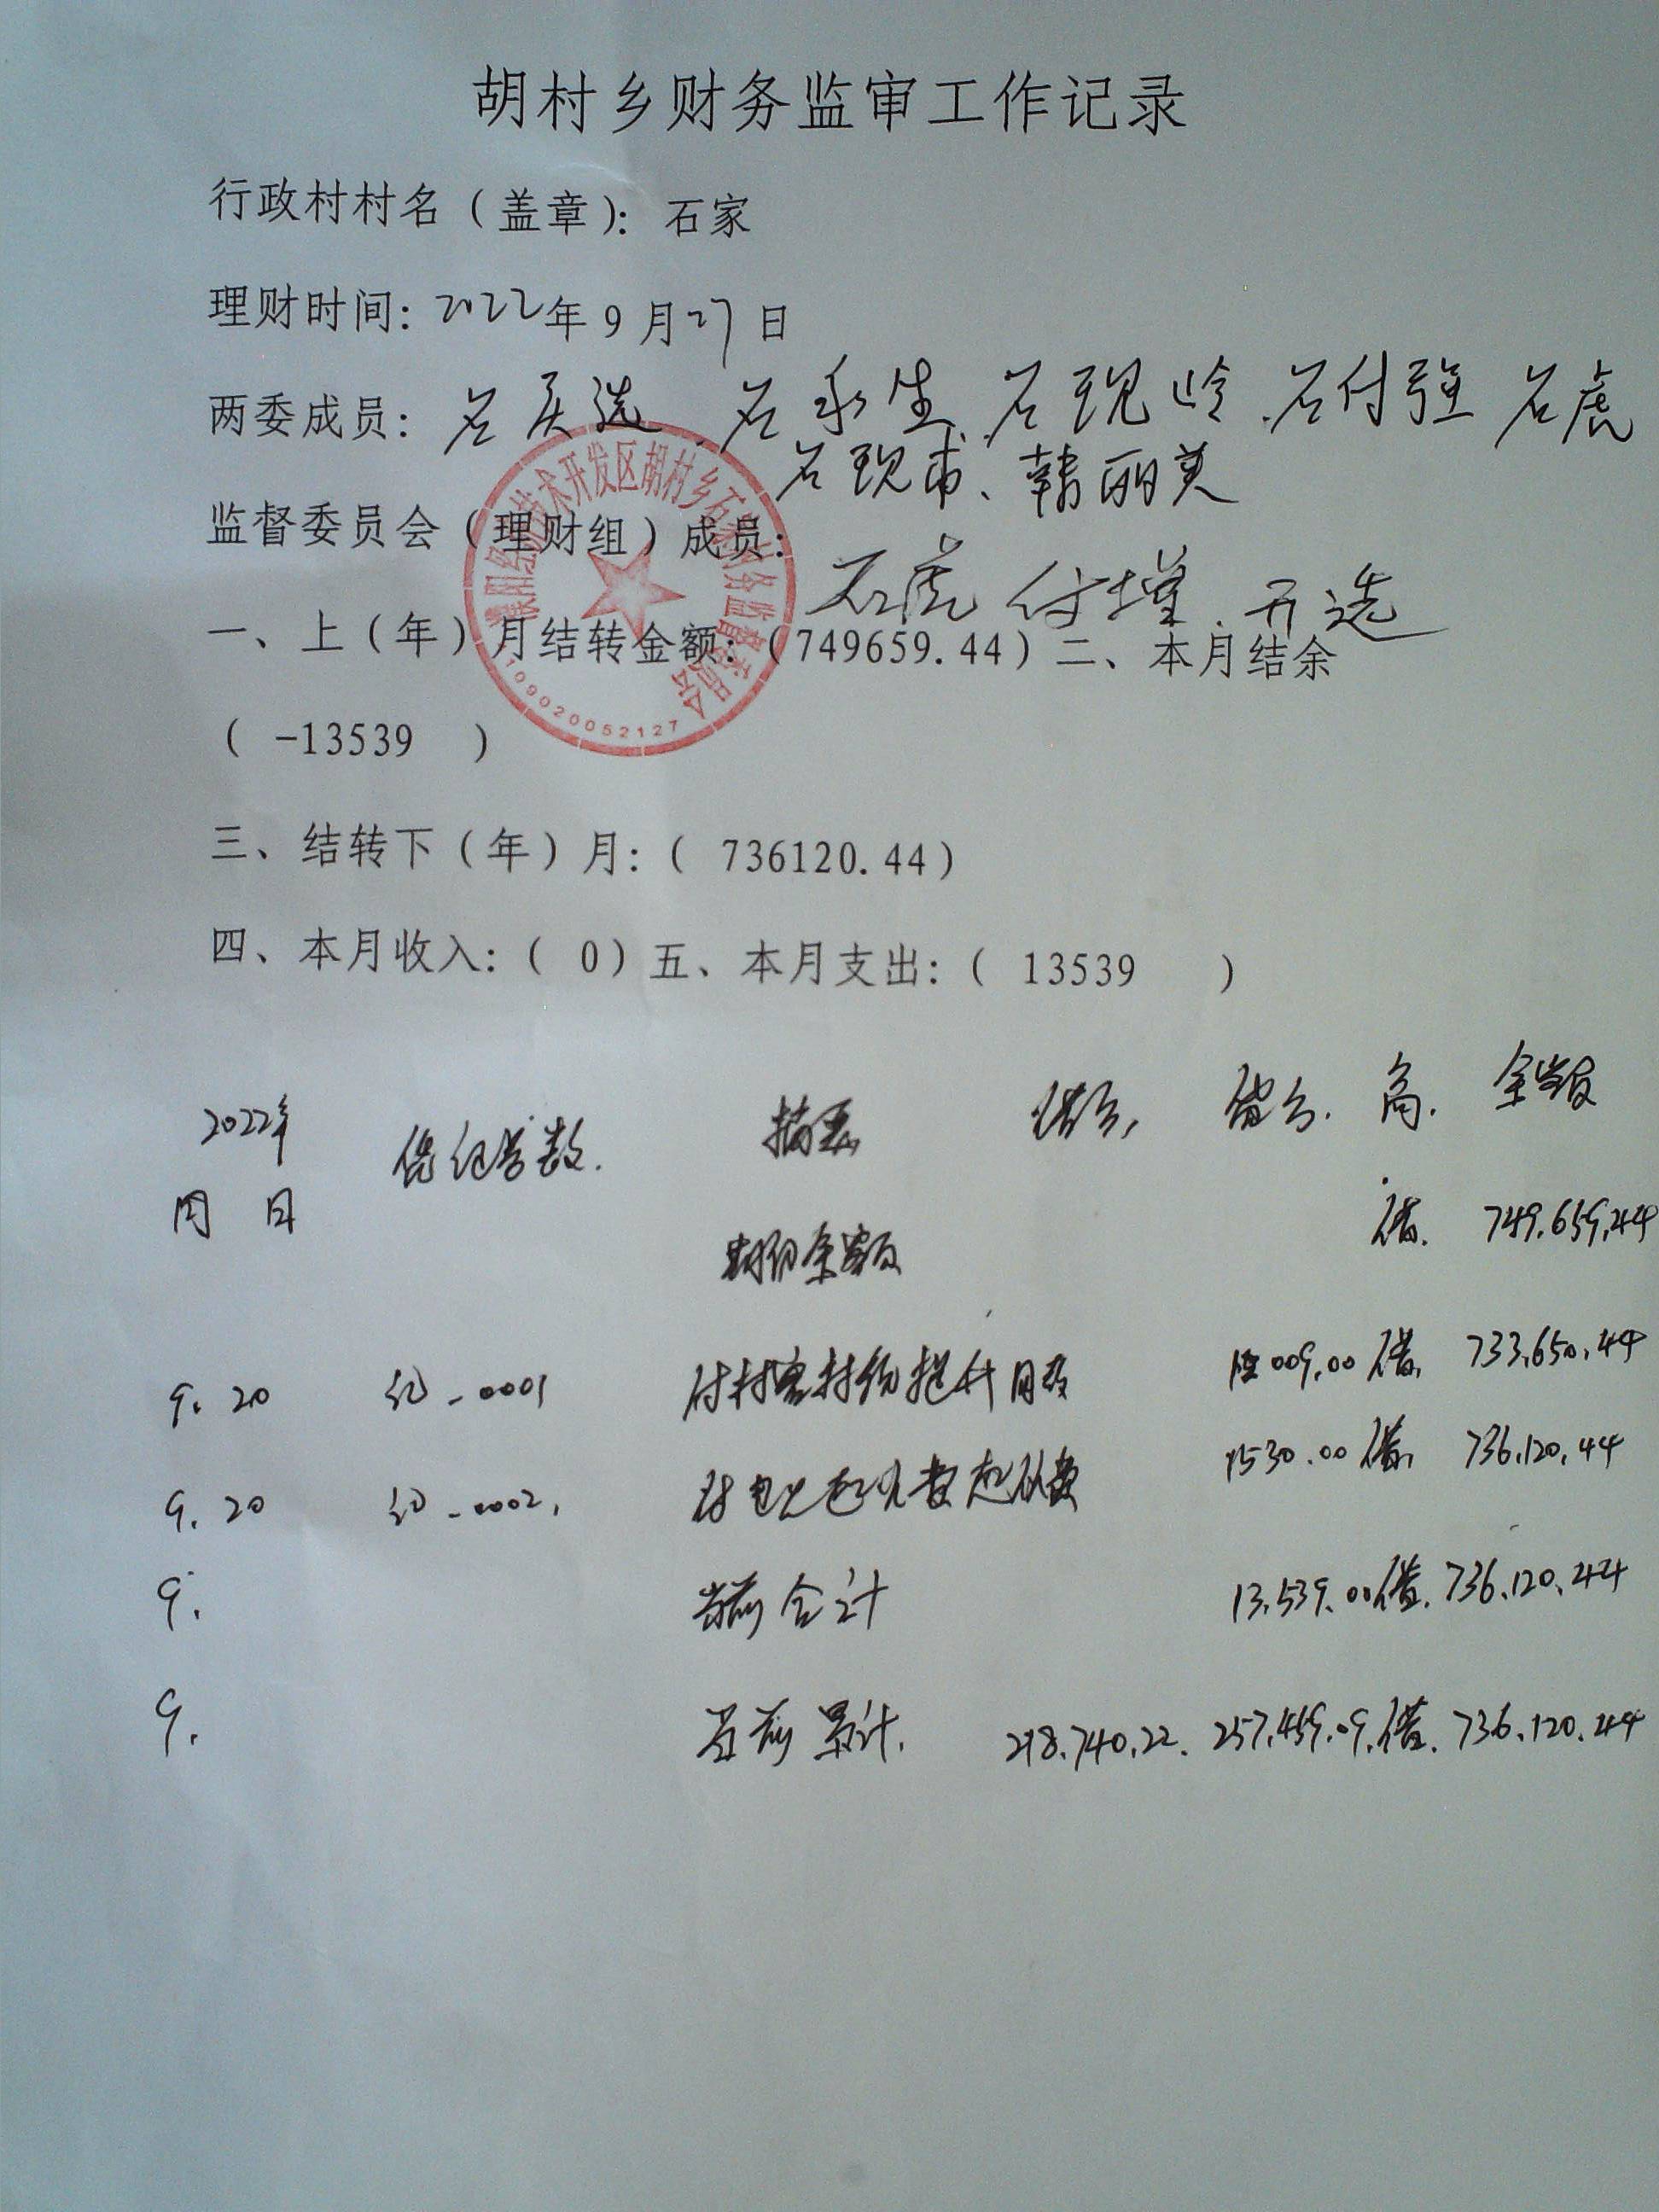 胡村乡财务监审工作记录
行政村村名（盖章）：石家
理财时间：2022年9月27日
两委成员：石庆选、石永生、石现岭、石付强 石虎
石现甫、韩丽美
监督委员会（理财组）成员：
石虎 付增 开选
濮阳经济技术开发区胡村乡石家村务监督委员会
一、上（年）月结转金额：（749659.44）二、本月结余
（ -13539 ）
三、结转下（年）月：（ 736120.44）
四、本月收入：（ 0）五、本月支出：（ 13539 ）
2022年 凭证号数. 摘要 借方, 贷方. 方. 余额
月 日
期初余额 借. 749.659.44
9. 20 记-0001 付村容村貌提升用 009.00 借 733.650.44
9. 20 记-0002. 付 费 530.00 借 736.120.44
9. 当前合计 13.539.00 借. 736.120.44
9. 当前累计. 218.740.22. 257.459.09. 借. 736.120.44